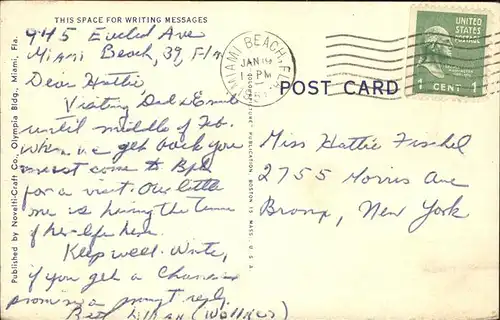 THIS SPACE FOR WRITING MESSAGES
945 Euclid Ave
Miami Beach, 39, Fla
Dear Hattie
Visiting Dad &
until middle of Feb.
When we get back you
must come to Bpt
for a visit. Our little
one is having the time
of her life here.
Keep well. Write,
if you get a chance
promise a prompt reply.
Best Lillian
Published by Novelti-Craft Co., Olympia Bldg., Miami, Fla.
MIAMI BEACH, FLA.
JAN 19
1 PM
UNITED
STATES
POSTAGE
1 CENT 1
POST CARD
PUBLICATION BOSTON 15, MASS., U. S. A.
Miss Hattie Fischel
2755 Morris Ave
Bronx, New York